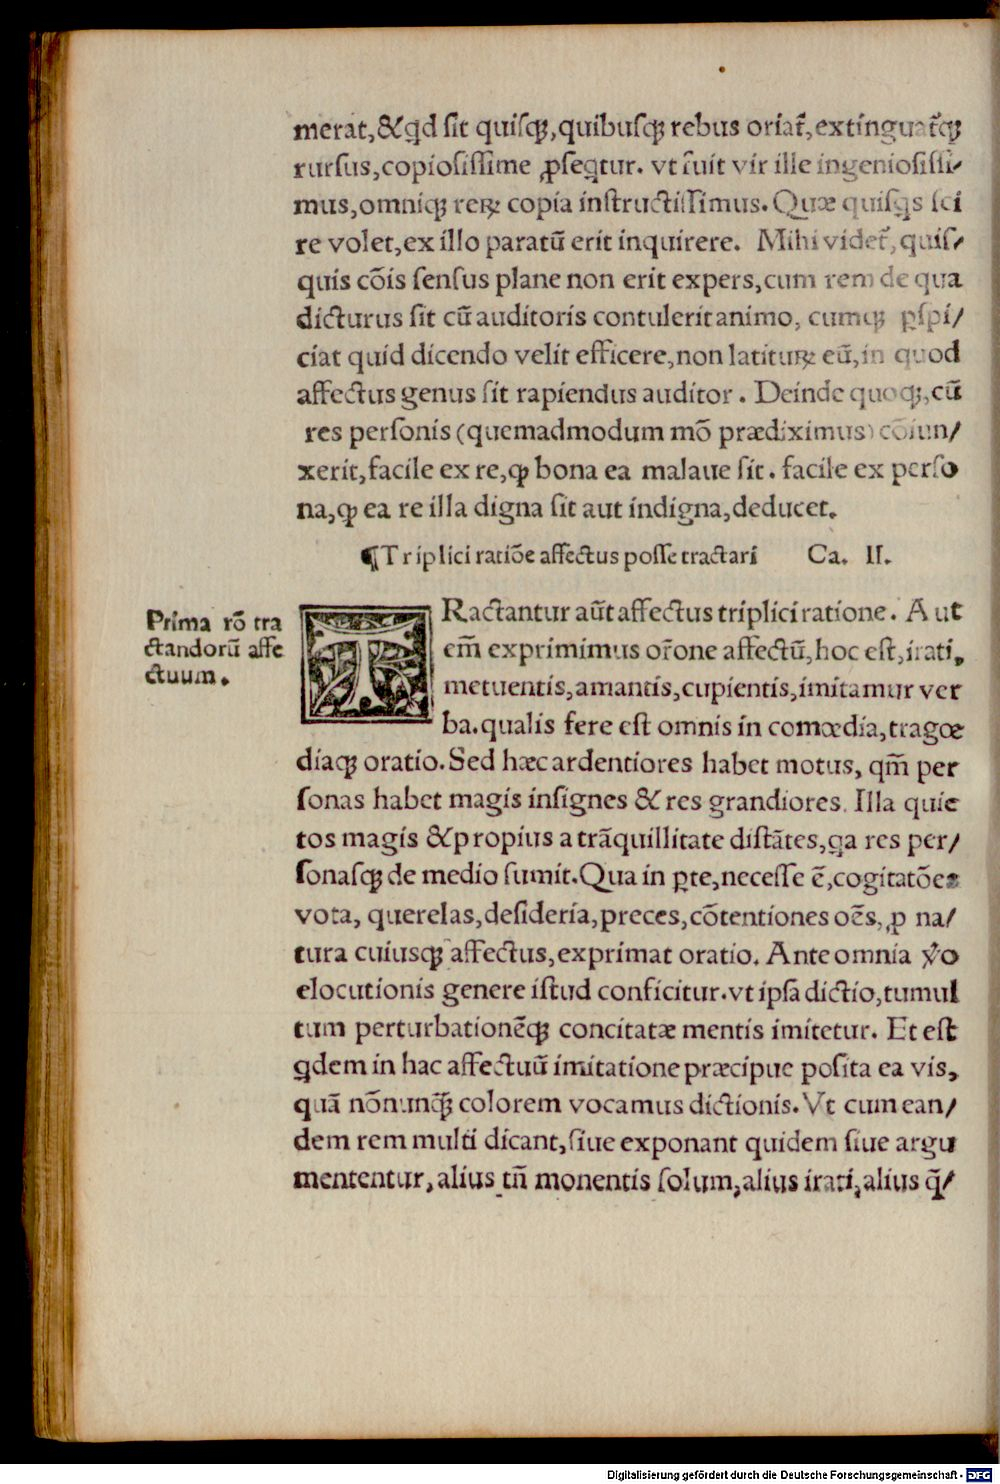 merat,&qd sit quisqꝫ,quibusqꝫ rebus oriat̃,extinguat̃qꝫ
rursus,copiosissime ꝓseqtur. vt fuit vir ille ingeniosissi/
mus,omniqꝫ reꝝ copia instructissimus. Quæ quisqs sci
re volet,ex illo paratũ erit inquirere. Mihi videt̃,quis/
quis cõis sensus plane non erit expers,cum rem de qua
dicturus sit cũ auditoris contulerit animo, cumqꝫ ꝑspi/
ciat quid dicendo velit efficere,non latituꝝ eũ,in quod
affectus genus sit rapiendus auditor. Deinde quoqꝫ,cũ
res personis (quemadmodum mõ prædiximus) cõiun/
xerit,facile ex re,ꝙ bona ea malaue sit. facile ex perso
na,ꝙ ea re illa digna sit aut indigna,deducet.
¶Triplici ratiõe affectus posse tractari Ca. II.
Prima rõ tra
ctandorũ affe
ctuum.
TRactantur aũt affectus triplici ratione. Aut
em̃ exprimimus or̃one affectũ,hoc est,irati,
metuentis,amantis,cupientis,imitamur ver
ba.qualis fere est omnis in comœdia,tragœ
diaqꝫ oratio. Sed hæc ardentiores habet motus, qm̃ per
sonas habet magis insignes & res grandiores. Illa quie
tos magis & propius a trãquillitate distãtes,qa res per/
sonasqꝫ de medio sumit. Qua in ꝑte,necesse ẽ,cogitatões
vota, querelas,desideria,preces,cõtentiones oẽs, ꝓ na/
tura cuiusqꝫ affectus,exprimat oratio. Ante omnia v̊o
elocutionis genere istud conficitur.vt ipsa dictio,tumul
tum perturbationẽqꝫ concitatæ mentis imitetur. Et est
qdem in hac affectuũ imitatione præcipue posita ea vis,
quã nõnunq̃ꝫ colorem vocamus dictionis. Vt cum ean/
dem rem multi dicant,siue exponant quidem siue argu
mententur, alius tñ monentis solum,alius irati,alius q̃/
Digitalisierung gefördert durch die Deutsche Forschungsgemeinschaft - DFG